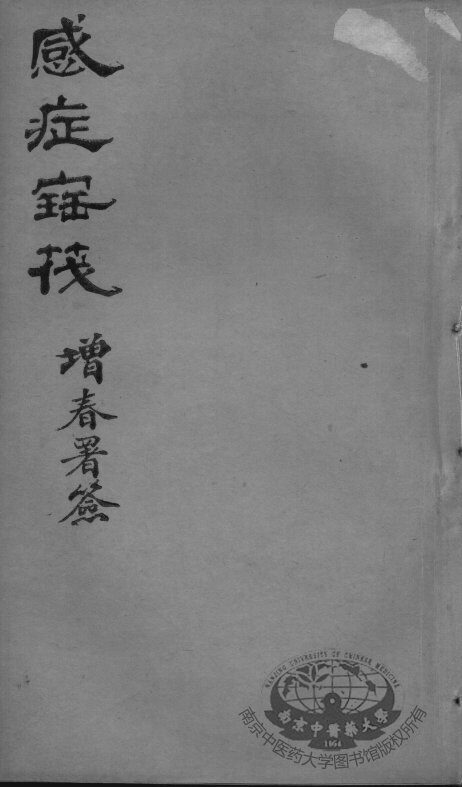 感症宝筏
增春署簽
NANJING UNIVERSITY OF CHINESE MEDICINE
南京中醫藥大學
1954
南京中医药大学图书馆版权所有